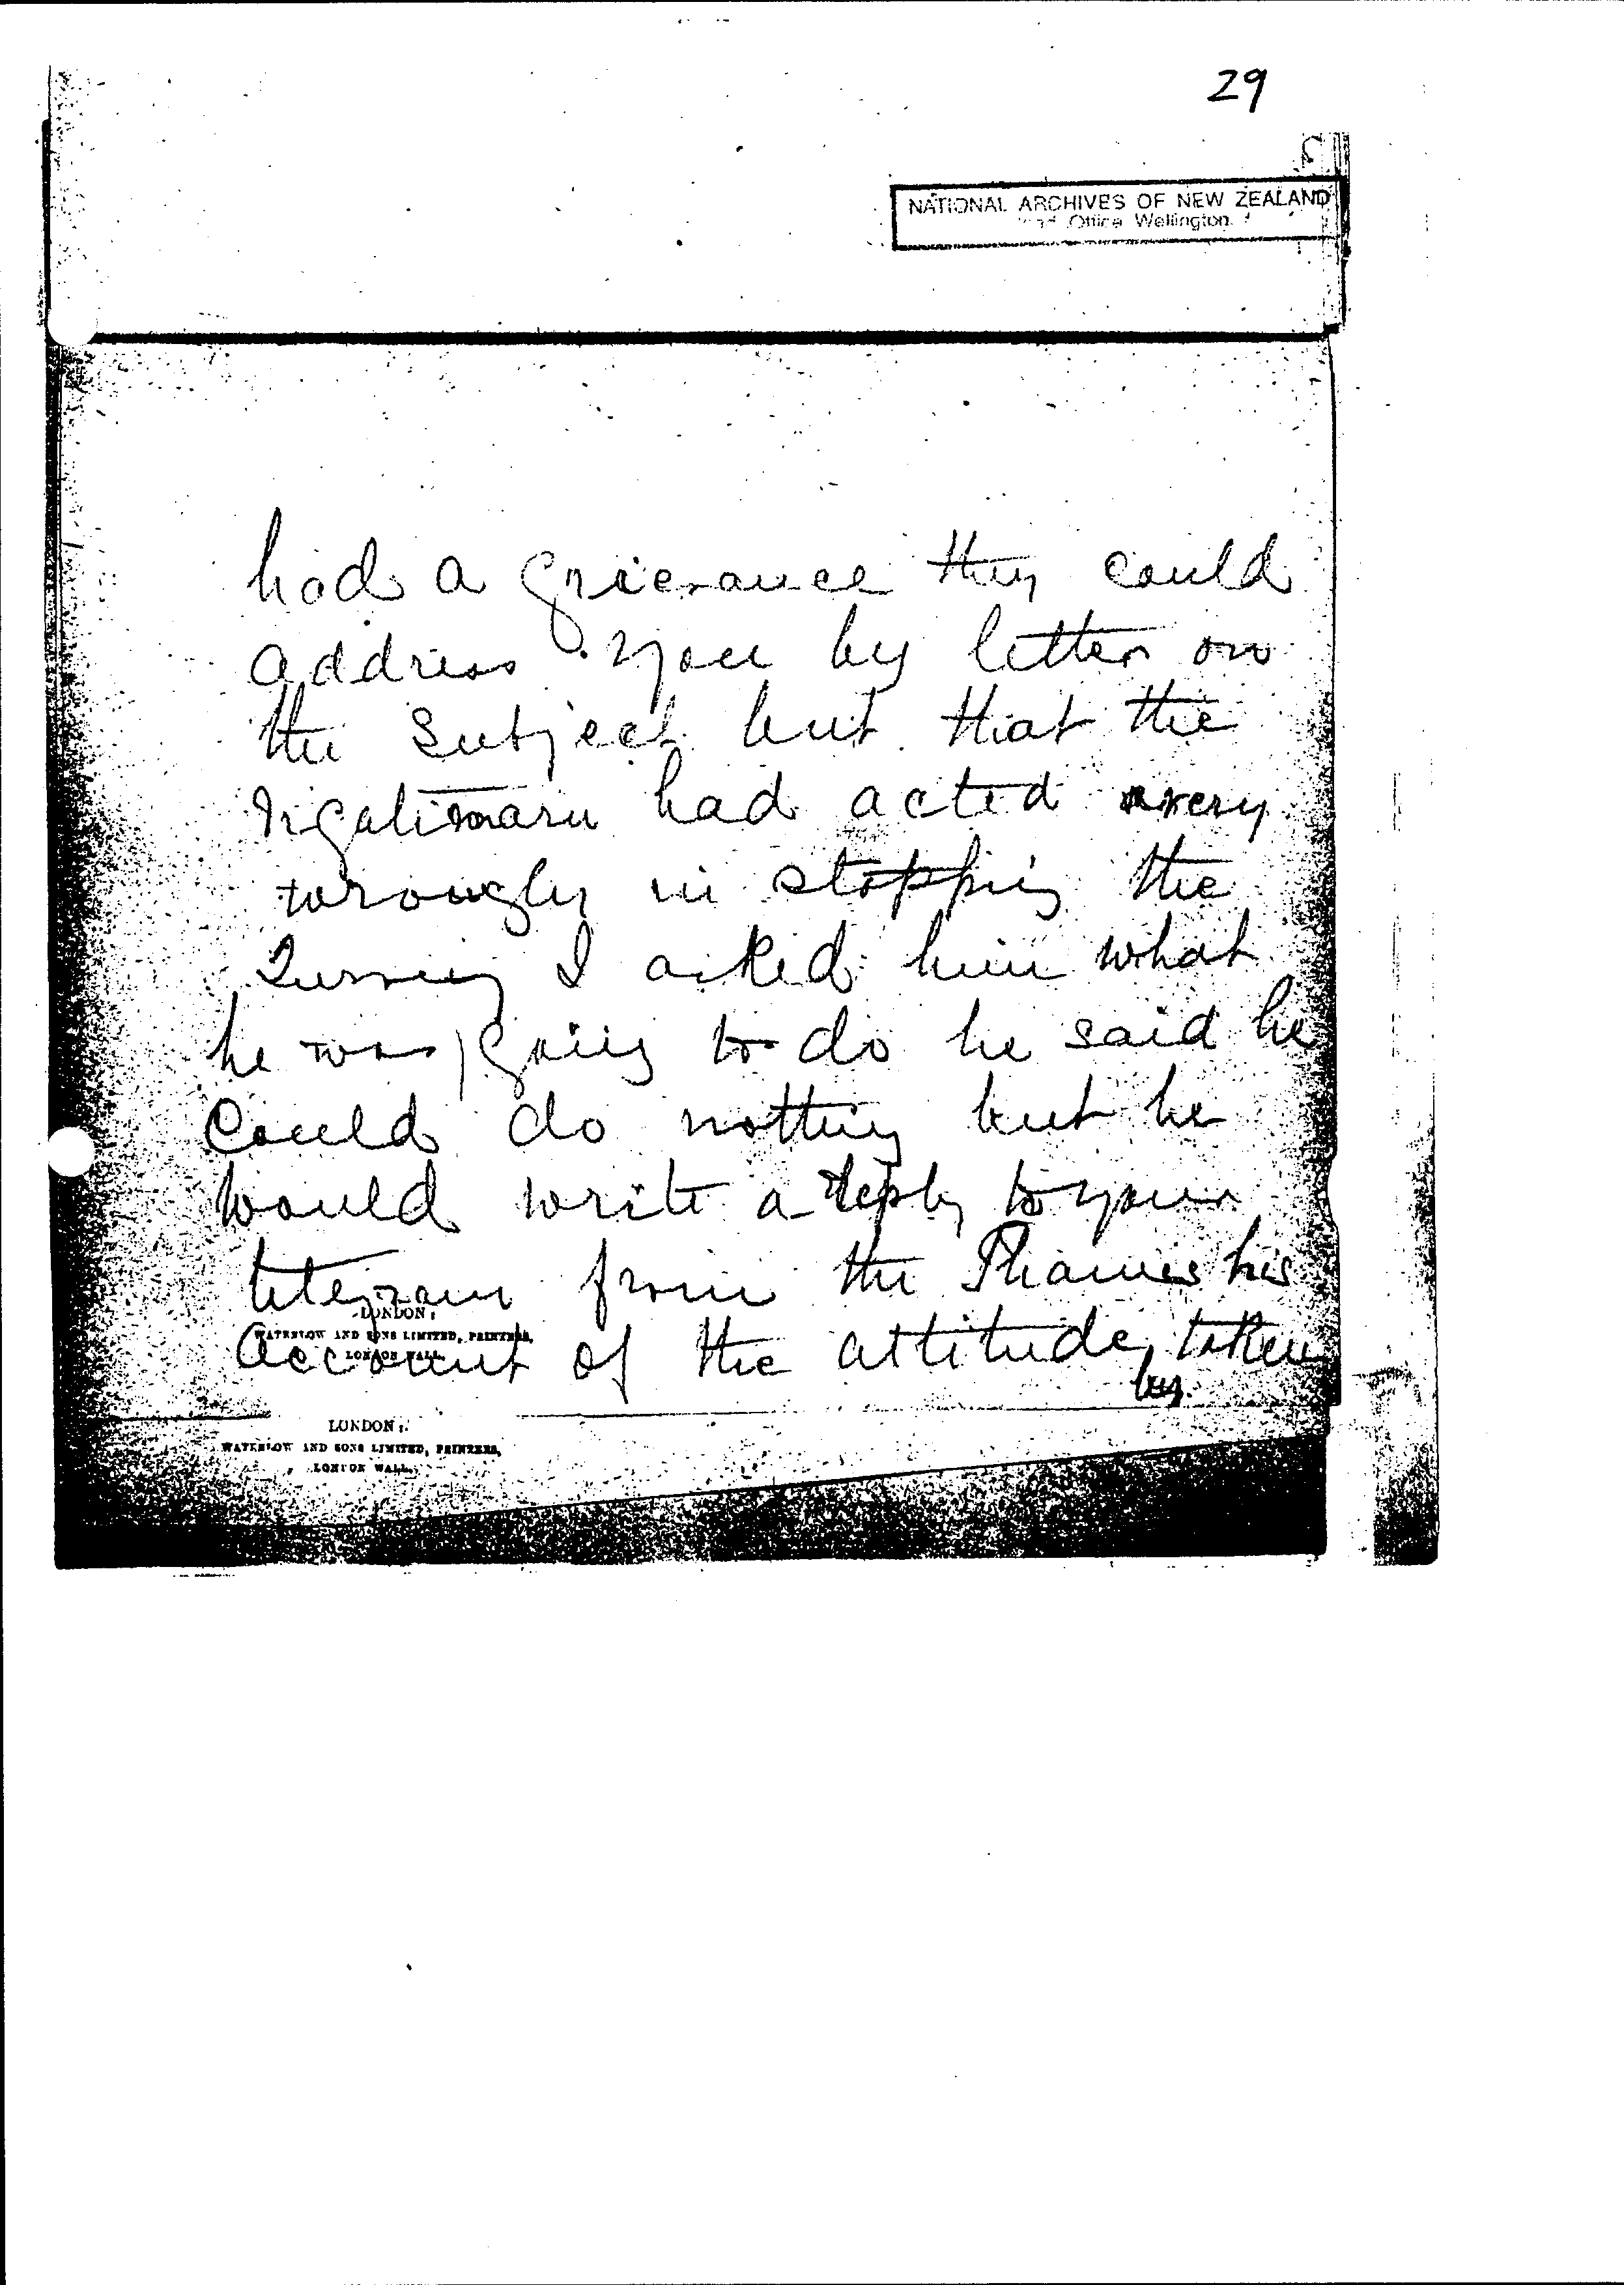 29
NATIONAL ARCHIVES OF NEW ZEALAND
Office Wellington
had a grievance they could
address you by letter on
the subject but that the
Ngatimaru had acted very
wrongly in stopping the
Survey I asked him what
he was going to do he said he
could do nothing but he
would write a reply to your
telegram from the Thames his
LONDON:
WATERLOW AND SONS LIMITED, PRINTERS,
LONDON WALL
account of the attitude, taken
by
LONDON:
WATERLOW AND SONS LIMITED, PRINTERS,
LONDON WALL